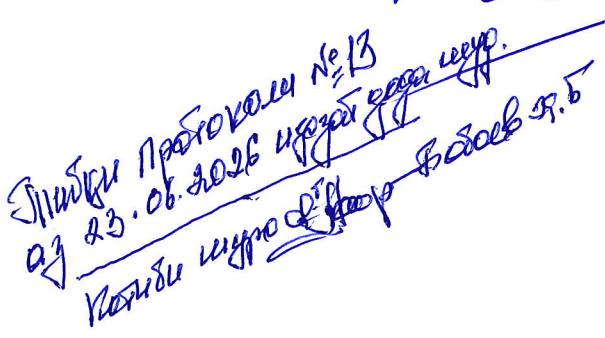 Тибқи Протоколи №13
аз 23.06.2026 иҷозат дода шуд.
Котиби шуро Бобоев Я.Б